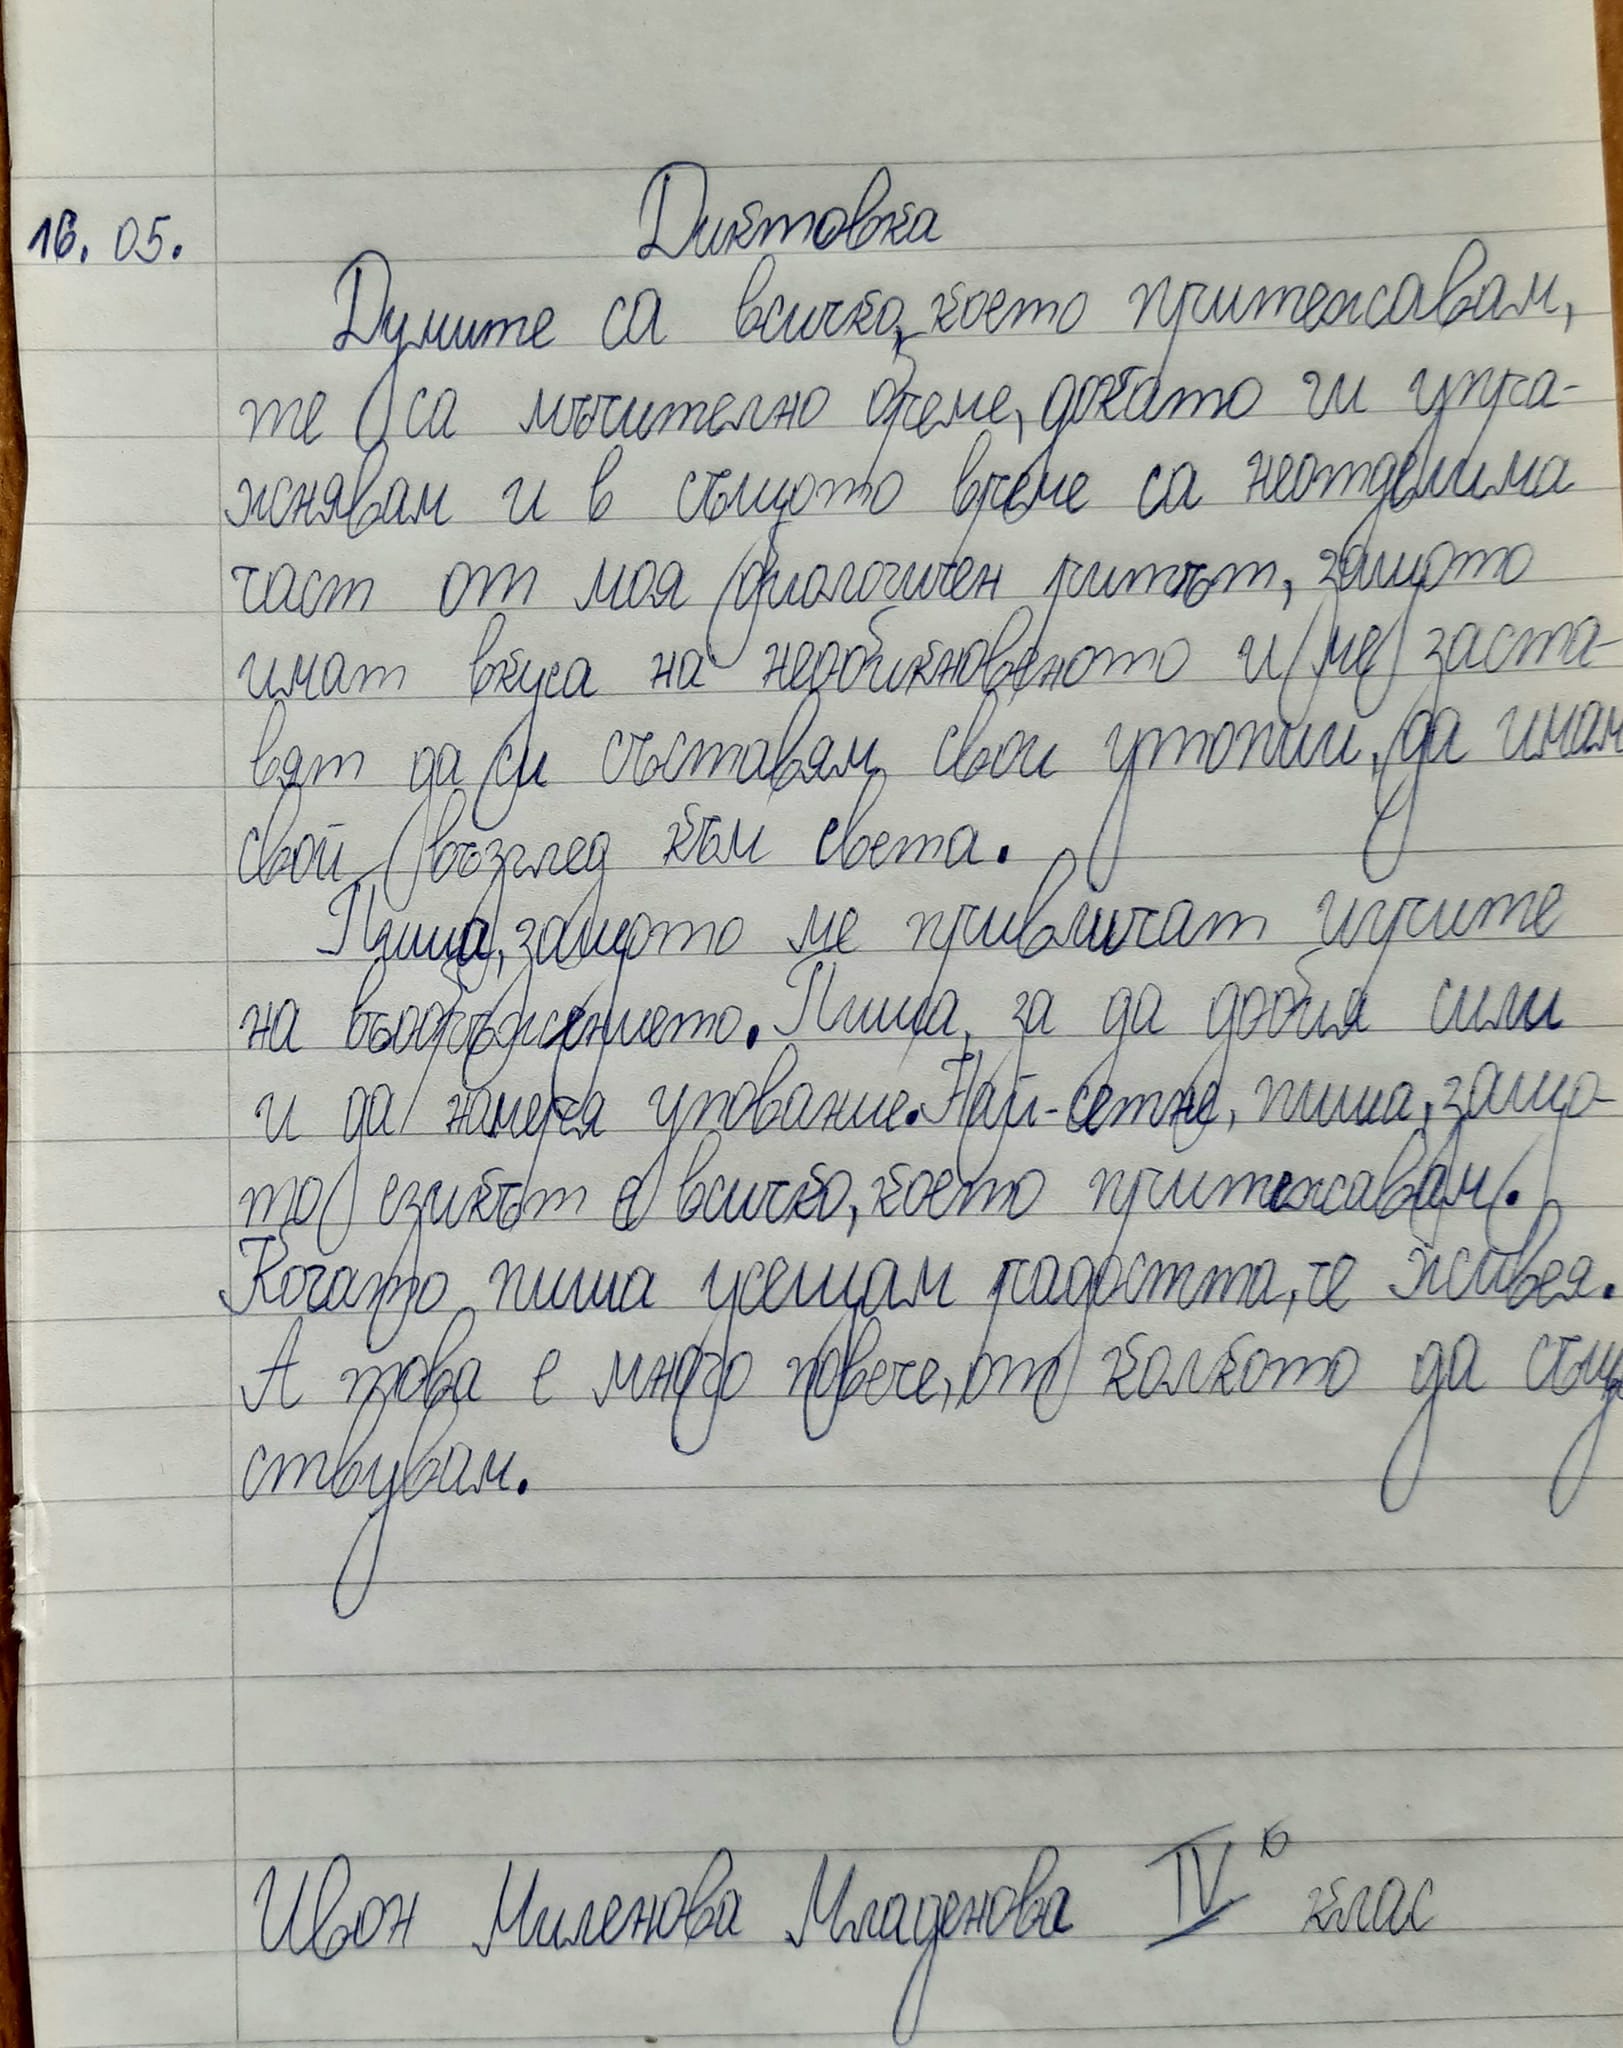 16.05. Диктовка
Думите са всичко, което притежавам,
те са мъчително бреме, докато ги упра-
жнявам и в същото време са неотделима
част от моя биологичен ритъм, защото
имат вкуса на необикновеното и ме заста-
вят да си съставям свои утопии, да имам
свой възглед към света.
Пиша, защото ме привличат игрите
на въображението. Пиша, за да добия сили
и да намеря упование. Най-сетне, пиша, защо-
то езикът е всичко, което притежавам.
Когато пиша усещам радостта, че живея.
А това е много повече, от колкото да същ
ствувам.
Ивон Миленова Младенова IV клас